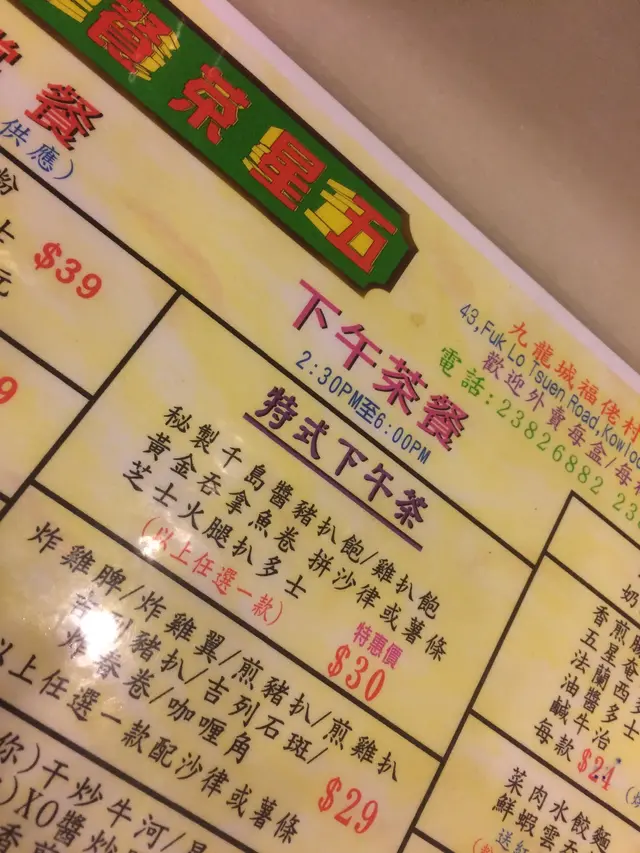 五星茶餐
餐
供應)
$39
九龍城福佬村
43,Fuk Lo Tsuen Road,Kowloo
歡迎外賣每盒/每
電話:23826882 23
下午茶餐
2:30PM至6:00PM
特式下午茶
秘製千島醬豬扒飽/雞扒飽
黃金吞拿魚卷 拼沙律或薯條
芝士火腿扒多士
(以上任選一款)
特惠價
$30
炸雞脾/炸雞翼/煎豬扒/煎雞扒
吉列豬扒/吉列石斑/
炸春卷/咖喱角
以上任選一款配沙律或薯條
$29
你)干炒牛河/星
)XO醬炒
香煎
奶
香煎
五星
法蘭西多
油醬多士
鹹牛治
每款 $24
菜肉水餃麵
鮮蝦雲五
粉
元
9